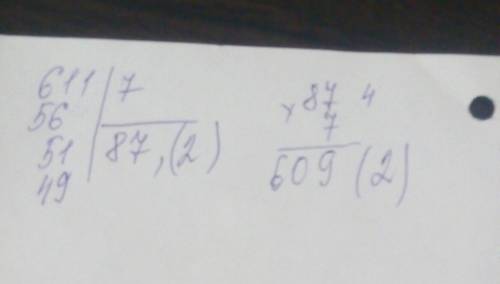 611 7
56
87,(2)
51
49
× 87 4
7
609 (2)